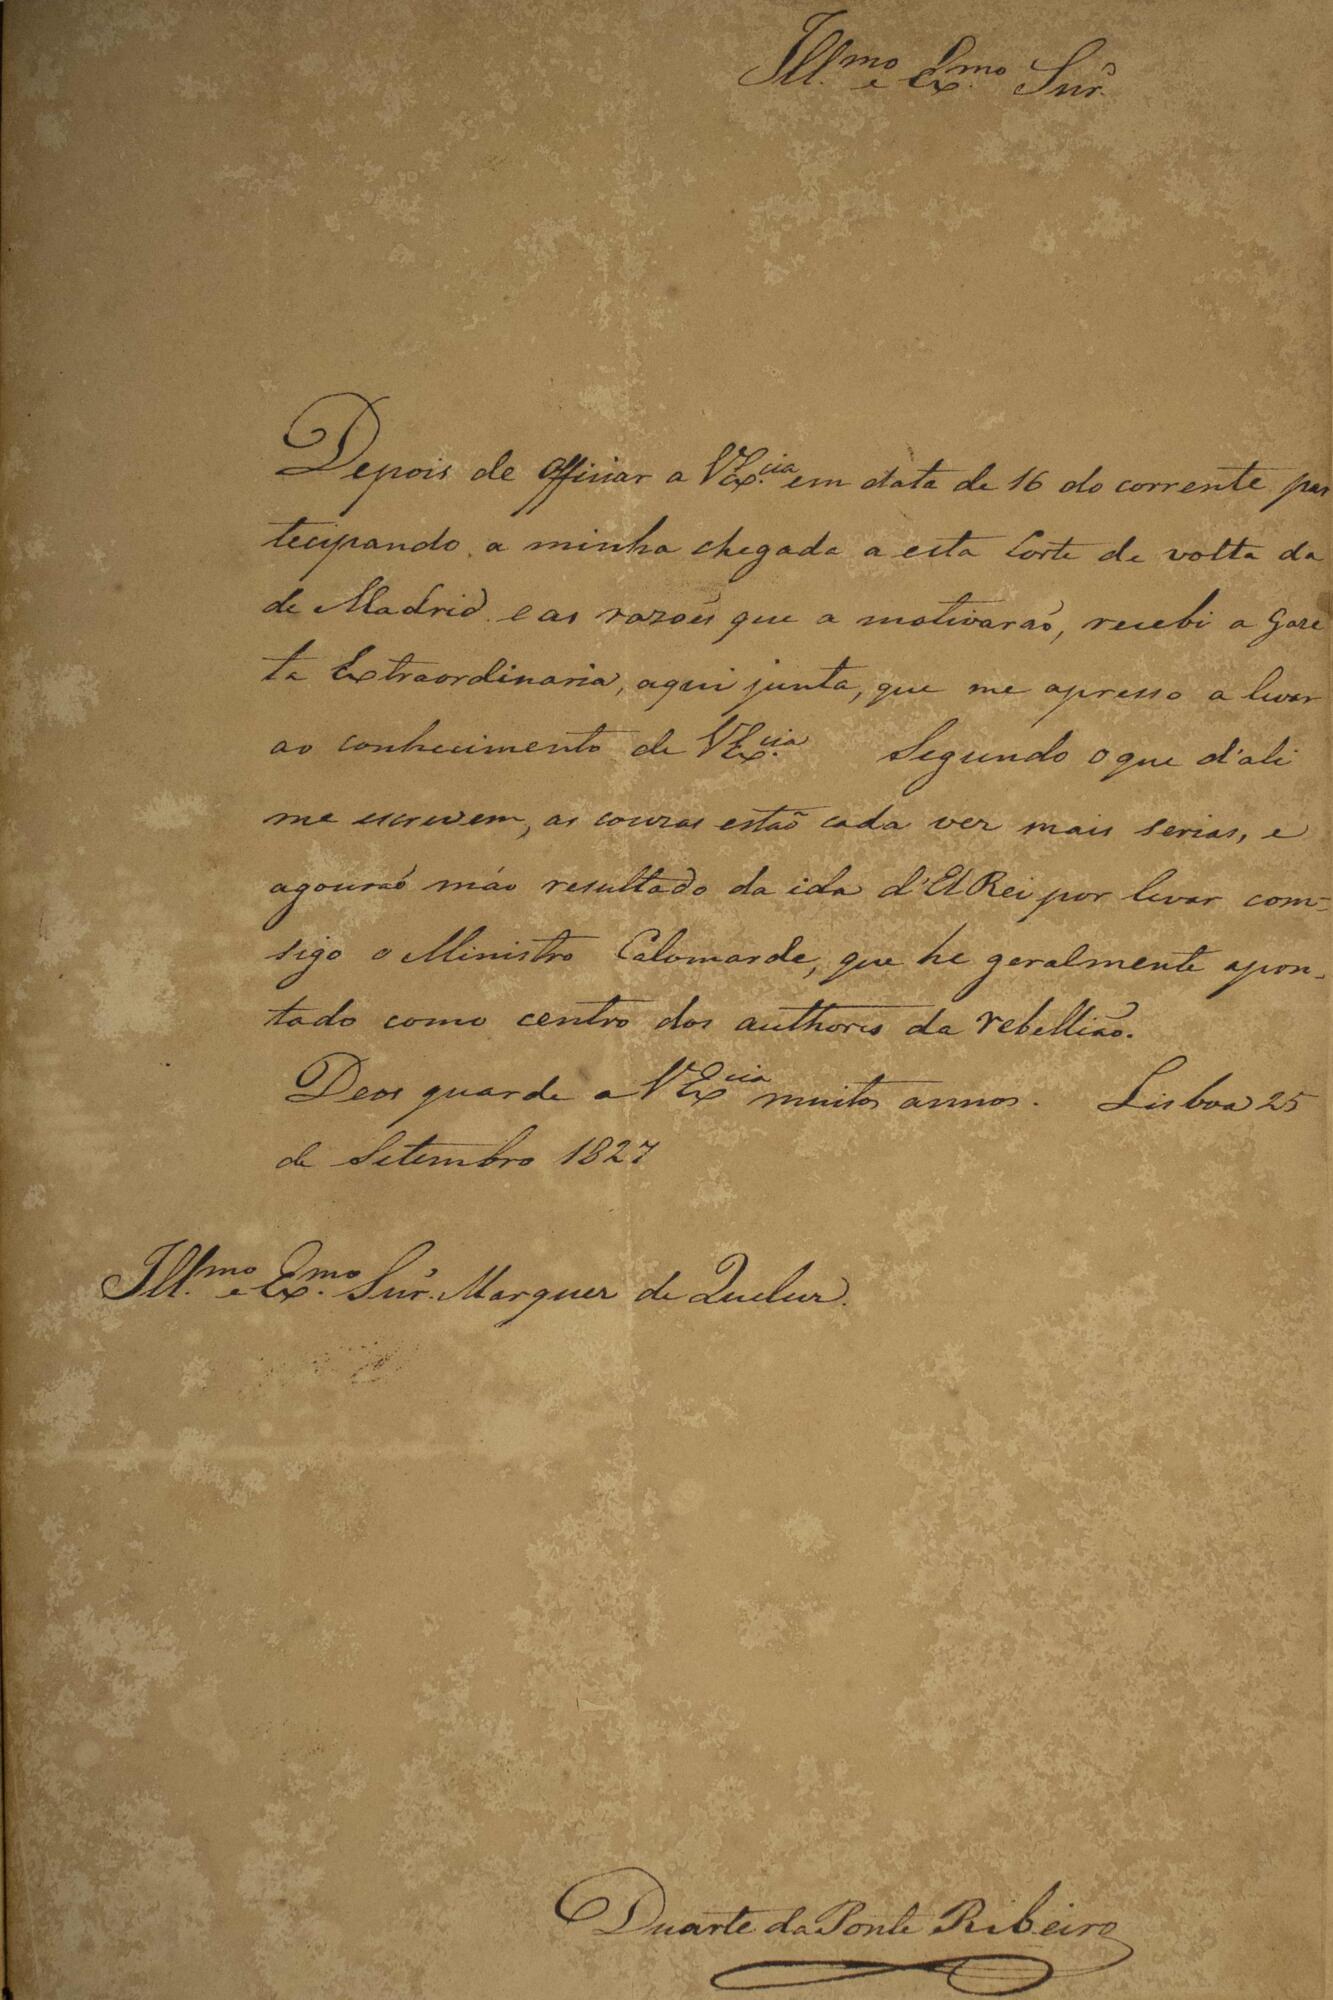 Ill.mo e Ex.mo Snr.
Depois de officiar a V Ex.cia em data de 16 do corrente par
tecipando a minha chegada a esta Corte de volta da
de Madrid e as razoẽs que a motivaraõ, recebi a Gaze
ta Extraordinaria, aqui junta, que me apresso a levar
ao conhecimento de V Ex.cia Segundo o que d'ali
me escrevem, as couzas estaõ cada vez mais serias, e
agouraõ máo resultado da ida d'El Rei por levar com-
sigo o Ministro Calomarde, que he geralmente apon-
tado como centro dos authores da rebelliaõ.
Deos guarde a V Ex.cia muitos annos. Lisboa 25
de Setembro 1827
Ill.mo e Ex.mo Snr. Marquez de Queluz.
Duarte da Ponte Ribeiro